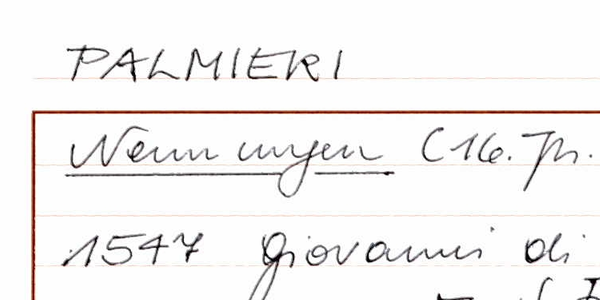 PALMIERI
Nennungen (16. Jh.
1547 Giovanni di